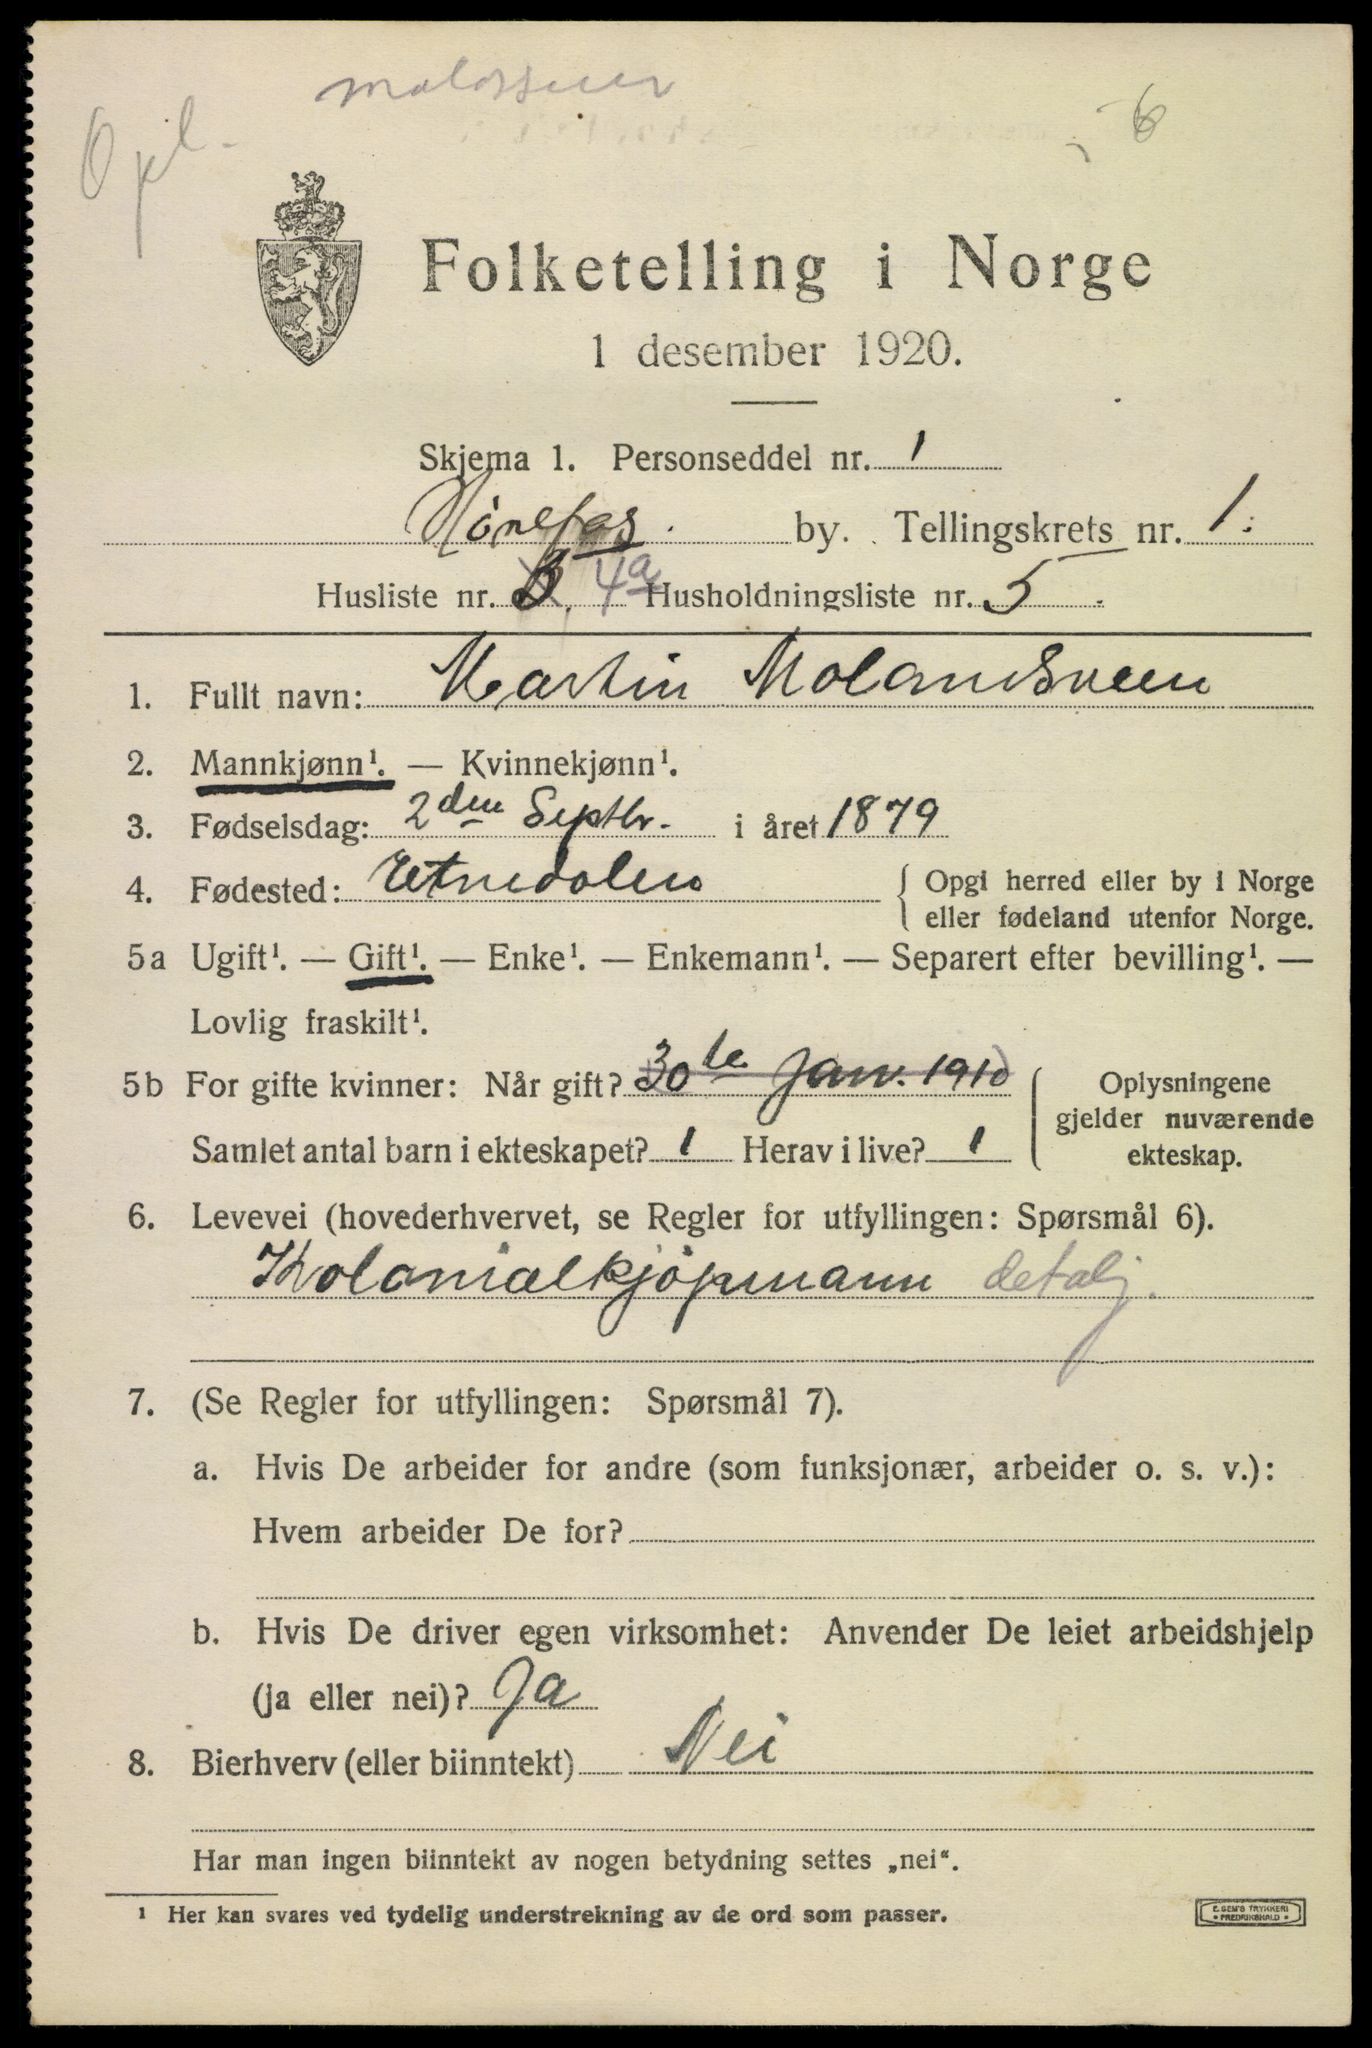 Opl.
6
Folketelling i Norge
1 desember 1920.
Skjema 1. Personseddel nr. 1
Hönefos. by. Tellingskrets nr. 1.
Husliste nr. 3. 4a Husholdningsliste nr. 5
1. Fullt navn: Martin Molandsveen
2. Mannkjønn¹. — Kvinnekjønn¹.
3. Fødselsdag: 2den Septbr. i året 1879
4. Fødested: Etnedalen { Opgi herred eller by i Norge
eller fødeland utenfor Norge.
5a Ugift¹. — Gift¹. — Enke¹. — Enkemann¹. — Separert efter bevilling¹. —
Lovlig fraskilt¹.
5b For gifte kvinner: Når gift? 30te Janv. 1910 { Oplysningene
gjelder nuværende
ekteskap.
Samlet antal barn i ekteskapet? 1 Herav i live? 1
6. Levevei (hovederhvervet, se Regler for utfyllingen: Spørsmål 6).
Kolonialkjöpmann detalj.
7. (Se Regler for utfyllingen: Spørsmål 7).
a. Hvis De arbeider for andre (som funksjonær, arbeider o. s. v.):
Hvem arbeider De for?
b. Hvis De driver egen virksomhet: Anvender De leiet arbeidshjelp
(ja eller nei)? Ja
8. Bierhverv (eller biinntekt) Nei
Har man ingen biinntekt av nogen betydning settes „nei“.
¹ Her kan svares ved tydelig understrekning av de ord som passer.
E. SEM'S TRYKKERI
• FREDRIKSHALD •